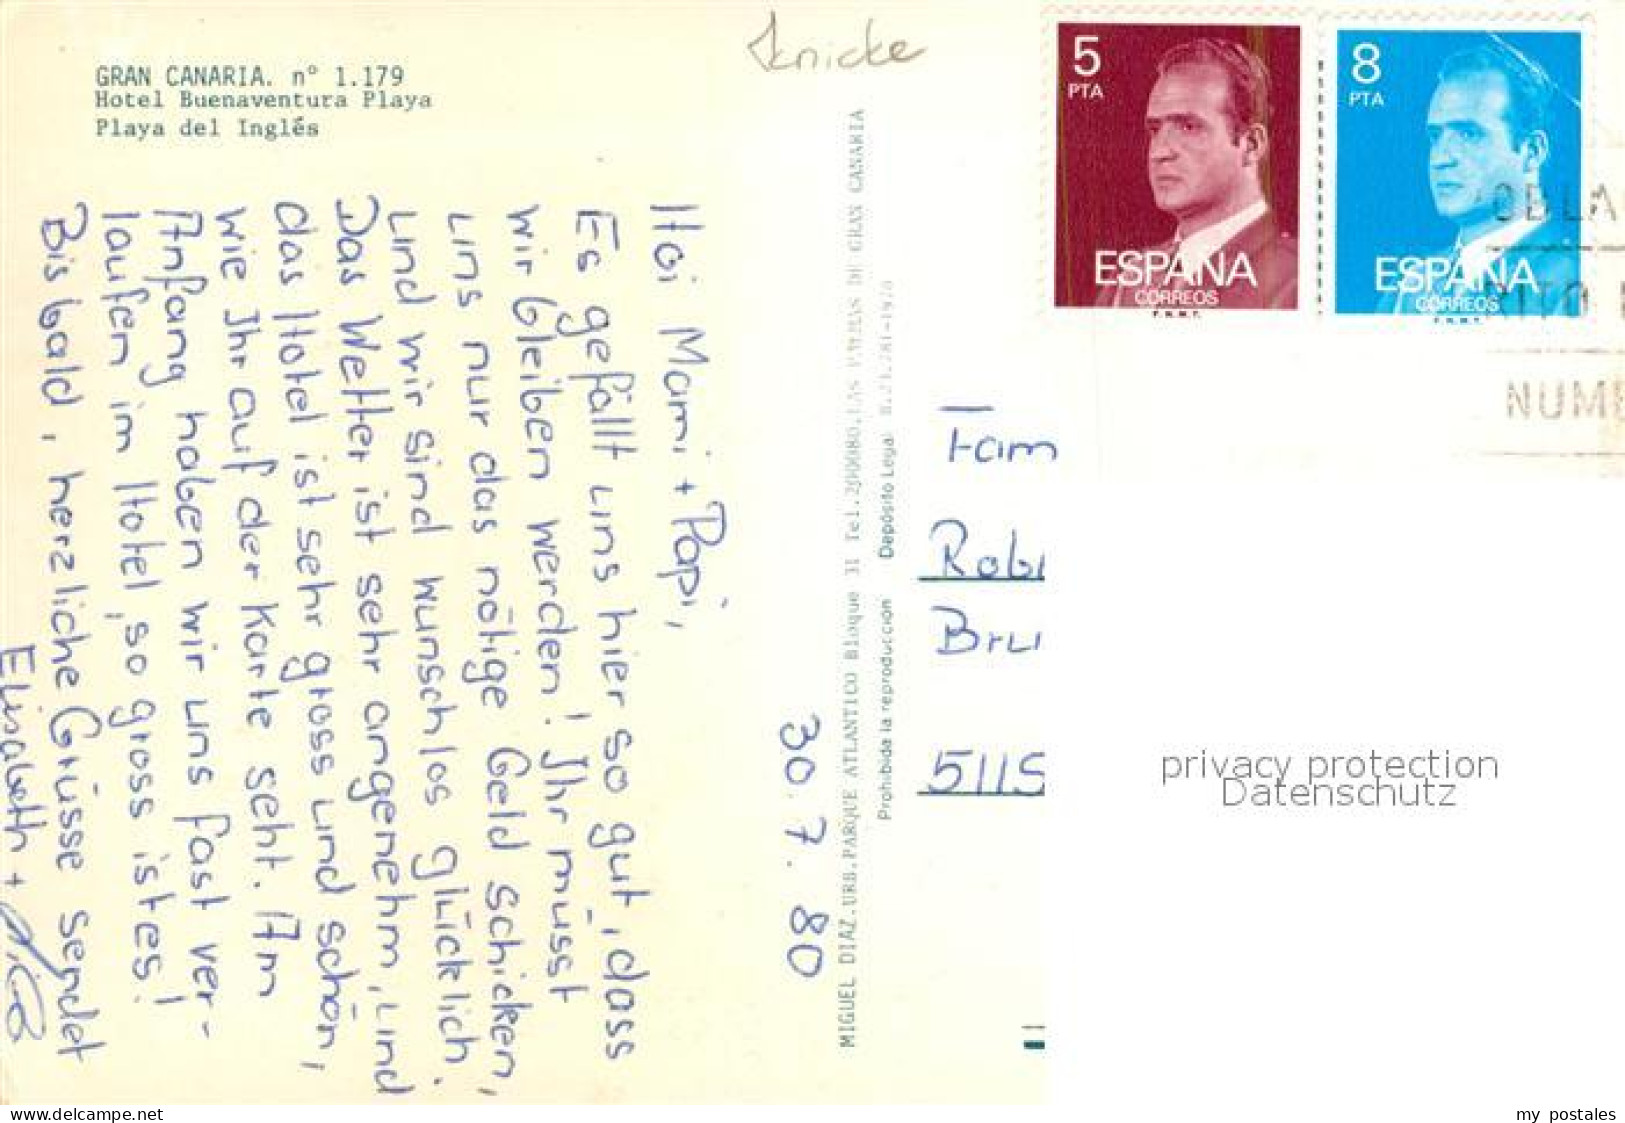 GRAN CANARIA. nº 1.179
Hotel Buenaventura Playa
Playa del Inglés
Knicke
Hoi Mami + Papi,
Es gefällt uns hier so gut, dass
wir bleiben werden! Ihr müsst
uns nur das nötige Geld schicken,
und wir sind wunschlos glücklich.
Das Wetter ist sehr angenehm, und
das Hotel ist sehr gross und schön,
wie Ihr auf der Karte seht. Am
Anfang haben wir uns fast ver-
laufen im Hotel, so gross ist es!
Bis bald, herzliche Grüsse sendet
Elisabeth +
30. 7. 80
MIGUEL DIAZ.URB.PARQUE ATLANTICO Bloque 31 Tel.2  LAS PALMAS DE GRAN CANARIA
Prohibida la reproducción Depósito Legal
5 PTA
ESPAÑA
CORREOS
F.N.M.T.
8 PTA
ESPAÑA
CORREOS
F.N.M.T.
OBLA
RITO
NUME
Fam
Robi
Bru
5115
privacy protection
Datenschutz
www.delcampe.net
my_postales